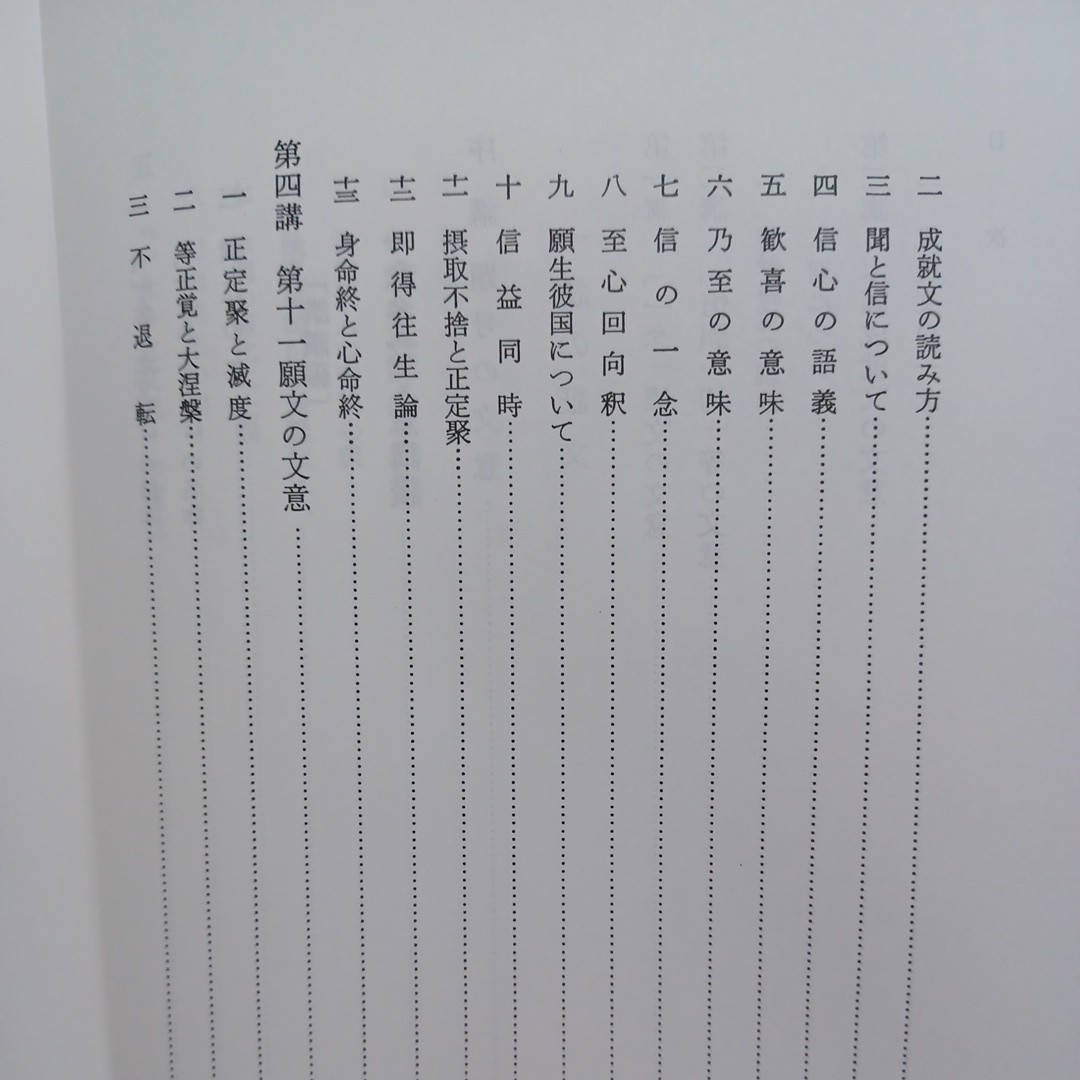 二 成就文の読み方
三 聞と信について
四 信心の語義
五 歓喜の意味
六 乃至の意味
七 信の一念
八 至心回向釈
九 願生彼国について
十 信益同時
十一 摂取不捨と正定聚
十二 即得往生論
十三 身命終と心命終
第四講 第十一願文の文意
一 正定聚と滅度
二 等正覚と大涅槃
三 不退転